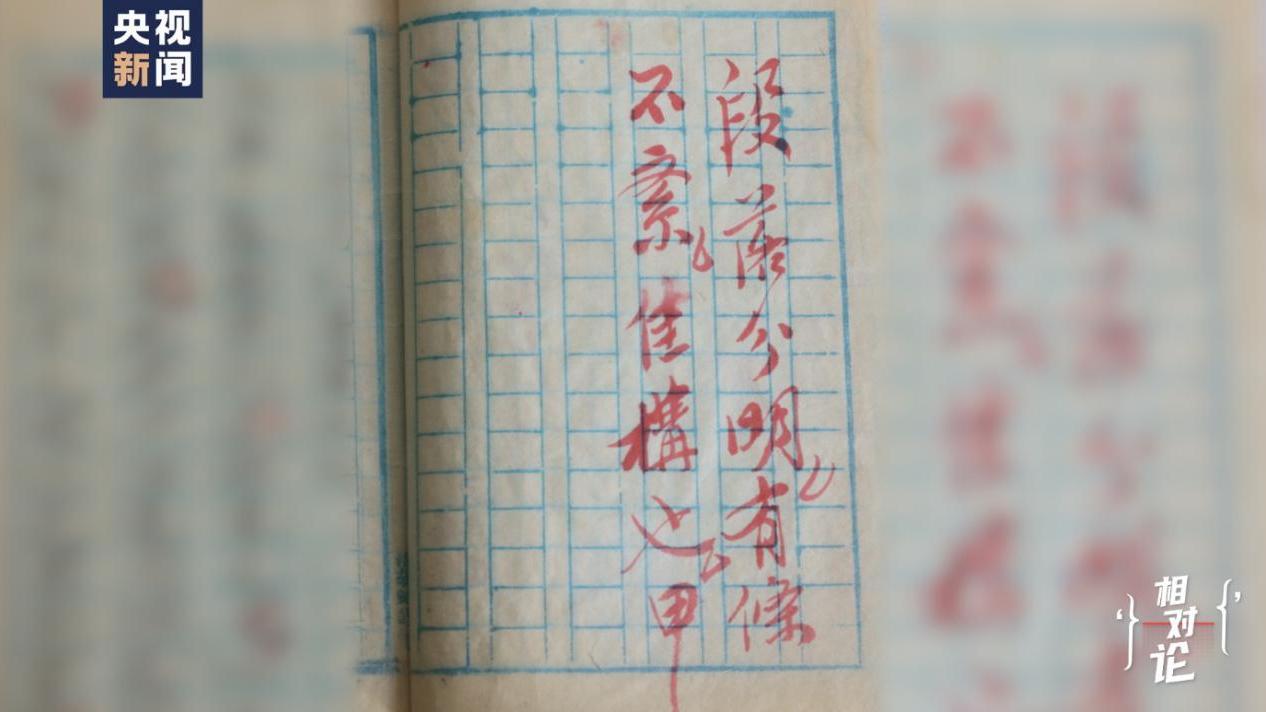 央视
新闻
段落分明有條
不紊佳構也甲
相
对
论